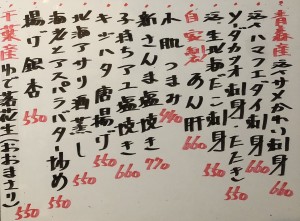 青森産 活〆サメガレイ刺身 660
活〆ハマフエダイ刺身 550
ソーダカツオ刺身 たたき 550
生北海だこ刺身 660
自家製 あん肝 660
小肌つまみ
新さんま塩焼き 770
子持ちアユ塩焼き 660
キジハタ唐揚げ 550
北海アサリ酒蒸し 550
海老とアスパラバター炒め 550
揚げ銀杏 550
千葉産 ゆで落花生(おおまさり)